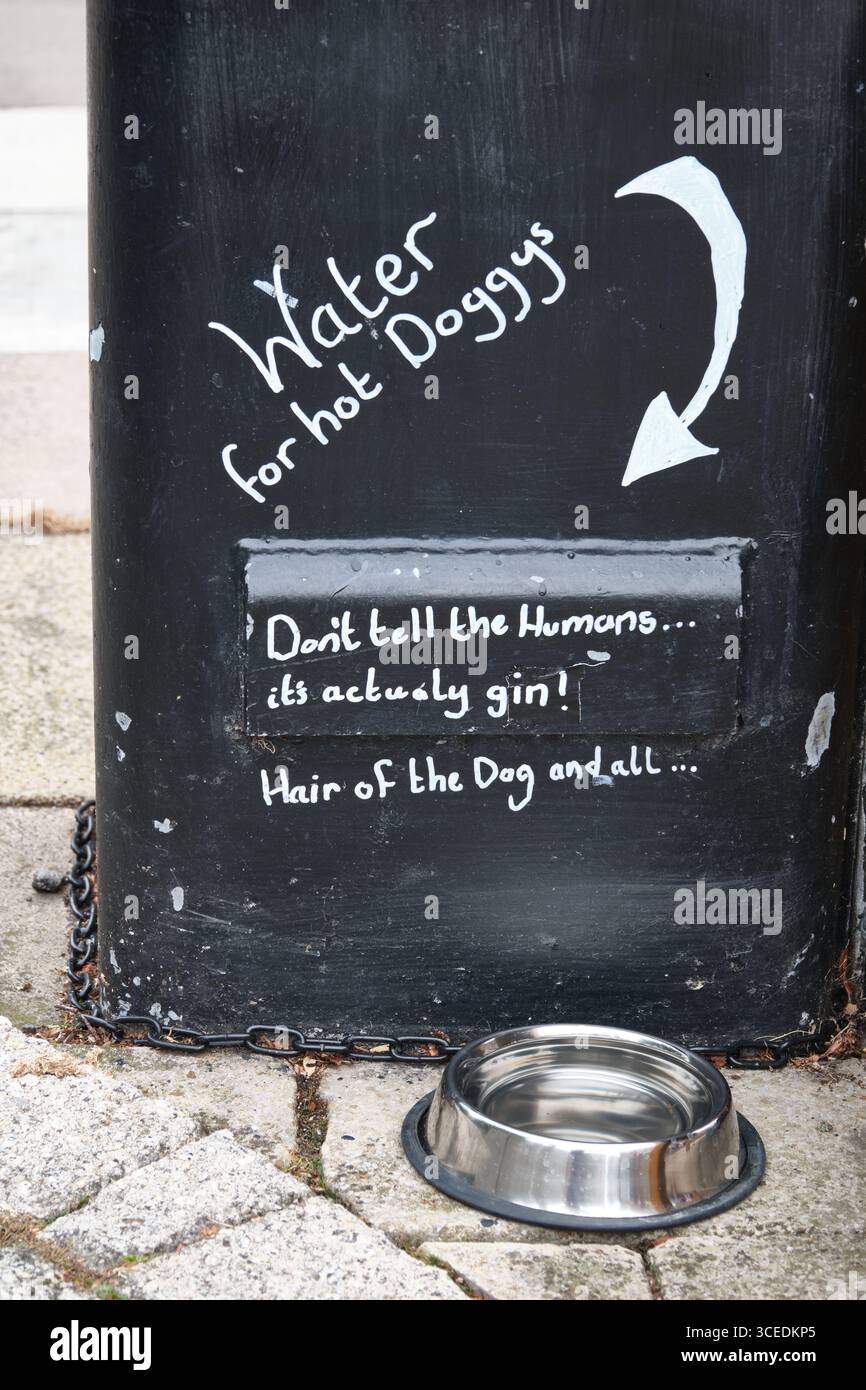 Water
for hot Doggys
Don't tell the Humans...
it's actualy gin!
Hair of the Dog and all...
alamy
alamy
alamy
Image ID: 3CEDKP5
www.alamy.com